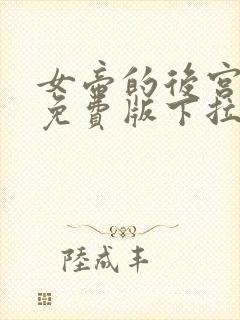 女帝的後宮
免費版下拉
陸成丰